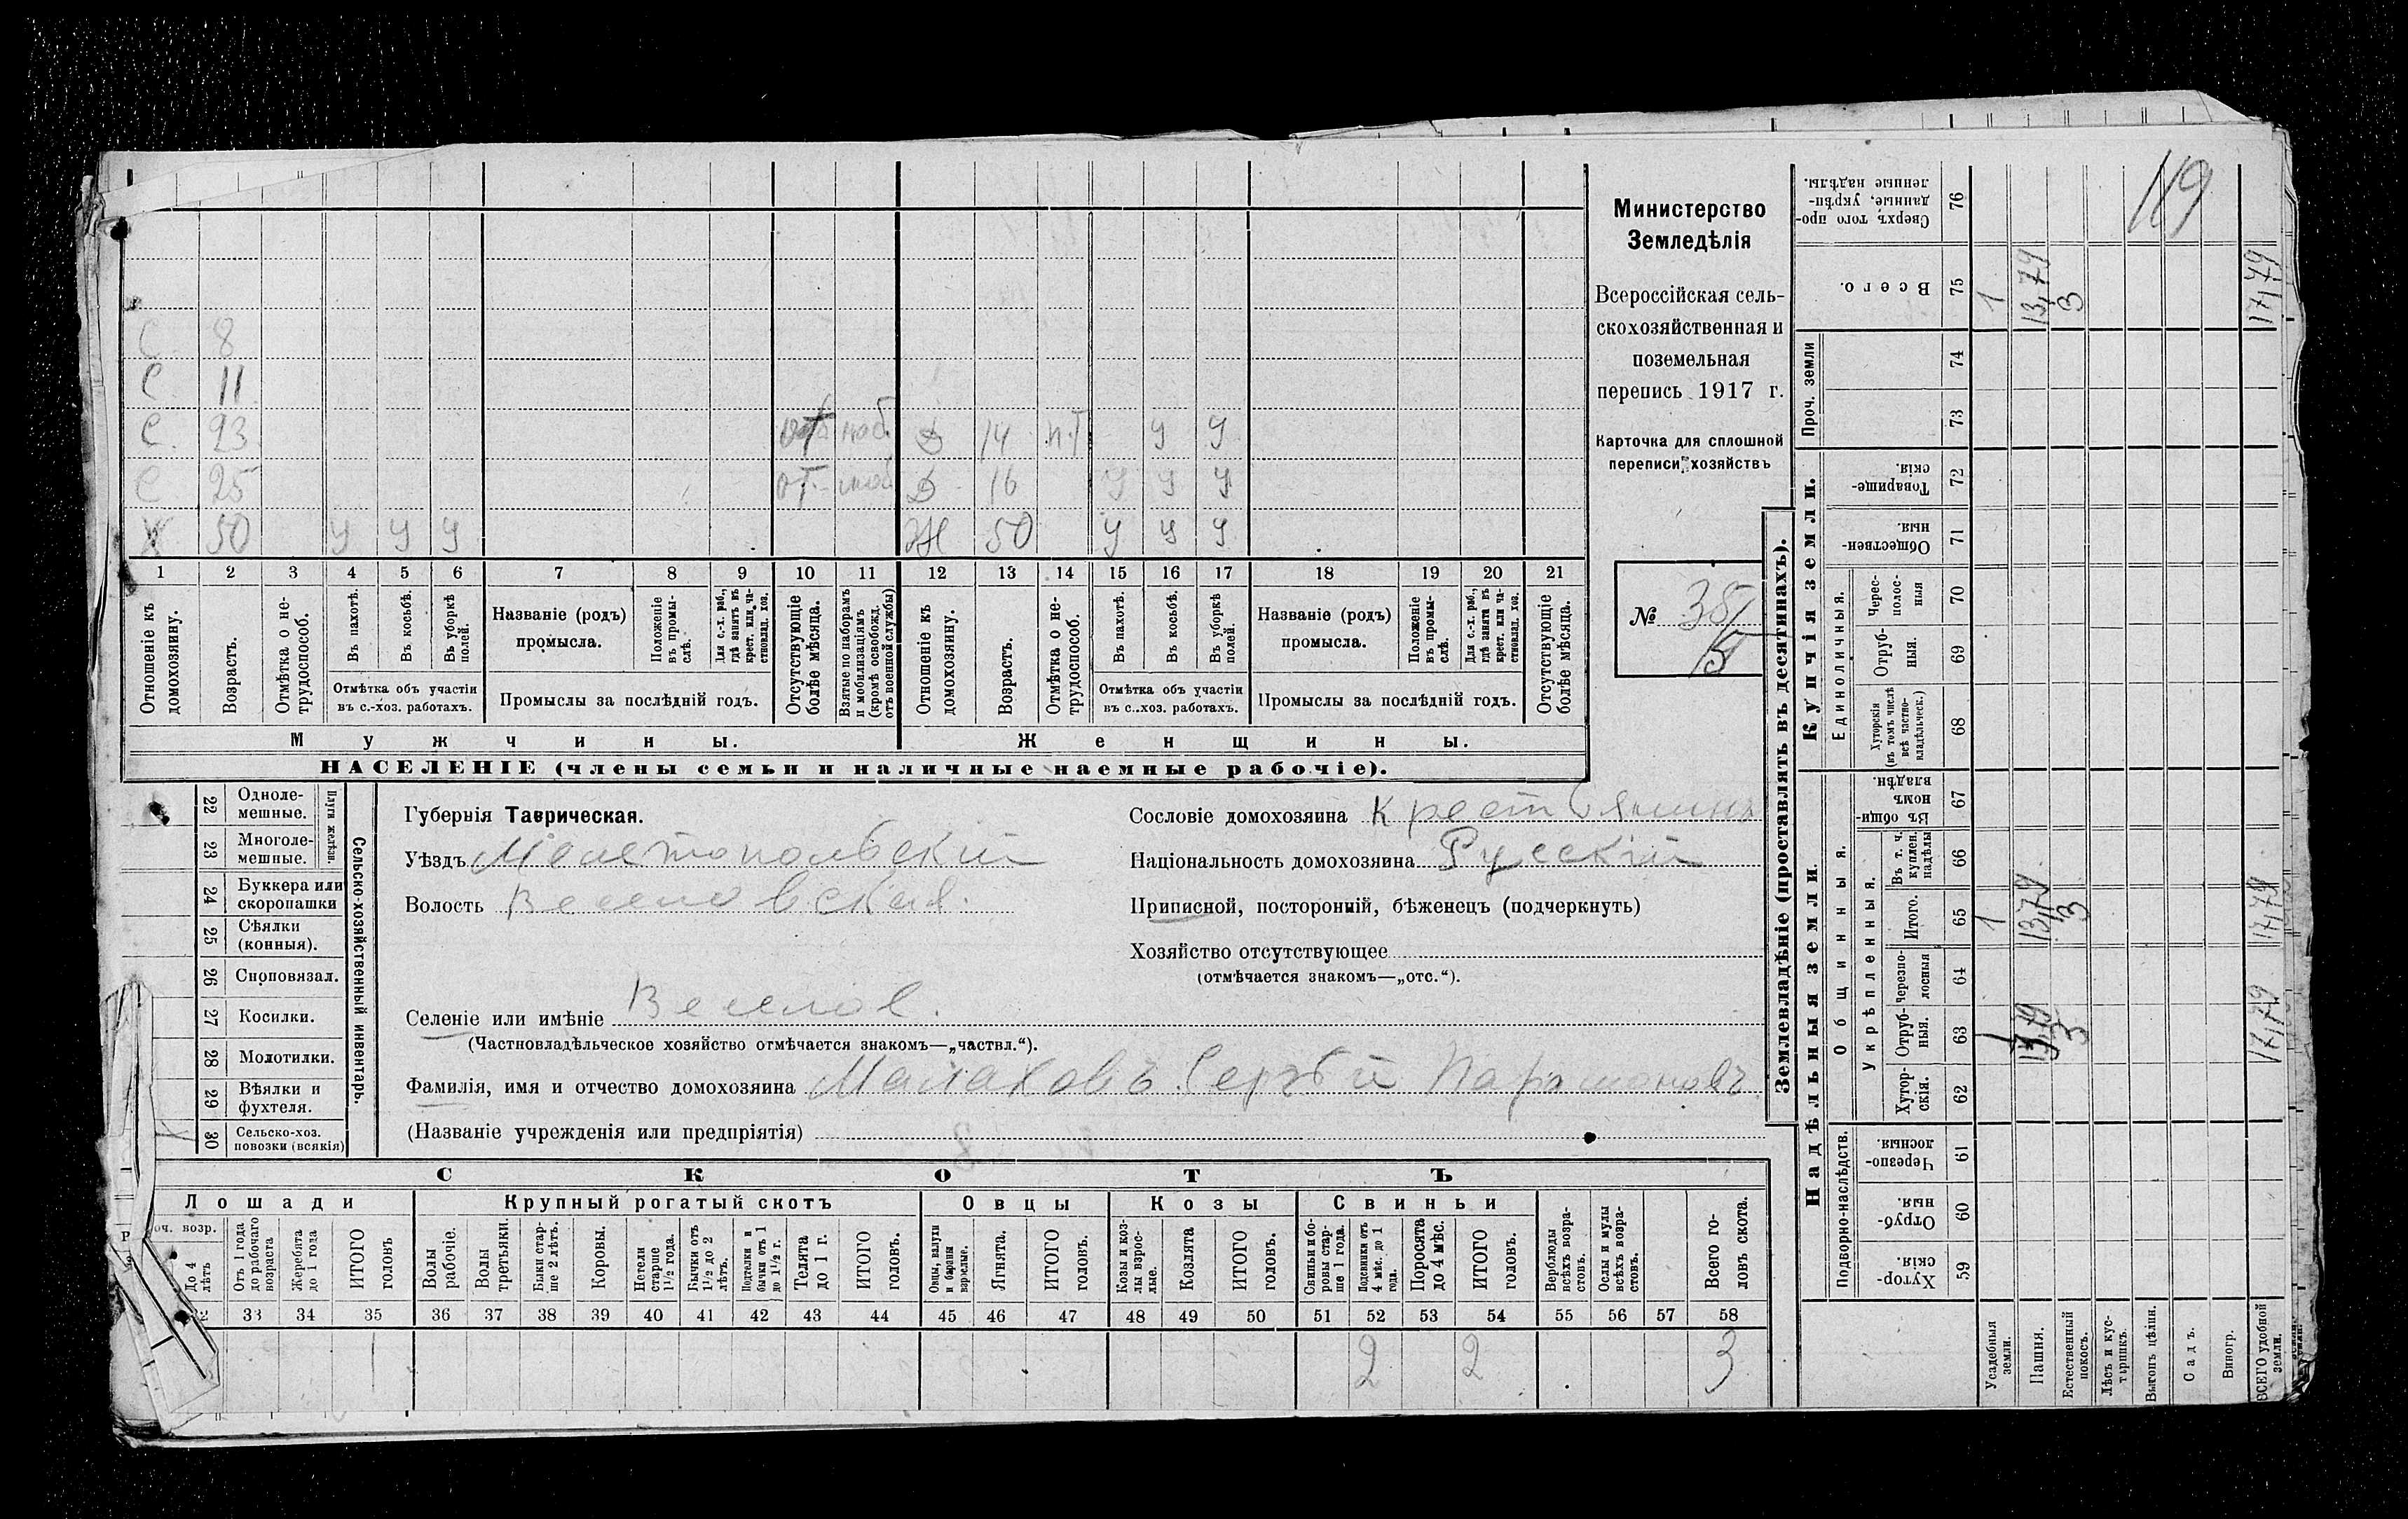 119
С. 8
С. 11
С. 23 от моб. Д 14 п.т У У
С 25 от. моб Д 16 У У У
Х 50 У У У Ж 50 У У У
1 2 3 4 5 6 7 8 9 10 11 12 13 14 15 16 17 18 19 20 21
Отношеніе къ домохозяину.
Возрастъ.
Отмѣтка о нетрудоспособ.
Въ пахотѣ.
Въ косьбѣ.
Въ уборкѣ полей.
Отмѣтка объ участіи
въ с.-хоз. работахъ.
Названіе (родъ)
промысла.
Положеніе въ промыслѣ.
Для с.-х. раб., гдѣ занятъ въ крест. или частновлад. хоз.
Промыслы за послѣдній годъ.
Отсутствующіе болѣе мѣсяца.
Взятые по наборамъ и мобилизаціямъ (кромѣ освобожд. отъ военной службы)
Отношеніе къ домохозяину.
Возрастъ.
Отмѣтка о нетрудоспособ.
Въ пахотѣ.
Въ косьбѣ.
Въ уборкѣ полей.
Отмѣтка объ участіи
въ с.-хоз. работахъ.
Названіе (родъ)
промысла.
Положеніе въ промыслѣ.
Для с.-х. раб., гдѣ занята въ крест. или частновлад. хоз.
Промыслы за послѣдній годъ.
Отсутствующіе болѣе мѣсяца.
Мужчины. Женщины.
НАСЕЛЕНІЕ (члены семьи и наличные наемные рабочіе).
Министерство
Земледѣлія
Всероссійская сель-
скохозяйственная и
поземельная
перепись 1917 г.
Карточка для сплошной
переписи хозяйствъ
№
22 Однолемешные.
23 Многолемешные.
Плуги желѣзн.
24 Буккера или скоропашки
25 Сѣялки (конныя).
26 Сноповязал.
27 Косилки.
28 Молотилки.
29 Вѣялки и фухтеля.
30 Сельско-хоз. повозки (всякія)
Сельско-хозяйственный инвентарь.
Губернія Таврическая.
Уѣздъ Мелитопольскій
Волость Веселовская.
Селеніе или имѣніе Веселое.
(Частновладѣльческое хозяйство отмѣчается знакомъ—„частвл.“).
Фамилія, имя и отчество домохозяина Малаховъ Сергѣй Парамоновъ
(Названіе учрежденія или предпріятія)
Сословіе домохозяина Крестьянинъ
Національность домохозяина Русскій
Приписной, посторонній, бѣженецъ (подчеркнуть)
Хозяйство отсутствующее
(отмѣчается знакомъ—„отс.“).
СКОТЪ
Лошади Крупный рогатый скотъ Овцы Козы Свиньи
До 4 лѣтъ
Отъ 1 года до рабочаго возраста
Жеребята до 1 года
ИТОГО головъ
Волы рабочіе.
Волы третьяки.
Быки старше 2 лѣтъ.
Коровы.
Нетели старше 1½ года.
Бычки отъ 1½ до 2 лѣтъ.
Подтелки и бычки отъ 1 до 1½ г.
Телята до 1 г.
ИТОГО головъ.
Овцы, валухи и бараны взрослые.
Ягнята.
ИТОГО головъ.
Козы и козлы взрослые.
Козлята
ИТОГО головъ.
Свиньи и боровы старше 1 года.
Подсвинки отъ 4 мѣс. до 1 года.
Поросята до 4 мѣс.
ИТОГО головъ.
Верблюды всѣхъ возрастовъ.
Ослы и мулы всѣхъ возрастовъ.
Всего головъ скота.
33 34 35 36 37 38 39 40 41 42 43 44 45 46 47 48 49 50 51 52 53 54 55 56 57 58
1 2 2 3
Землевладѣніе (проставлять въ десятинахъ).
Надѣльныя земли. Купчія земли.
Подворно-наслѣдств. Общинныя. Укрѣпленныя. Единоличныя. Проч. земли
Хуторскія. 59
Отрубныя. 60
Черезполосныя. 61
Хуторскія. 62
Отрубныя. 63
Черезполосныя 64
Итого. 65
Въ т. ч. куплен. надѣлы 66
Въ общинномъ владѣн. 67
Хуторскія (въ томъ числѣ всѣ частновладѣльческ.) 68
Отрубныя. 69
Черезполосныя 70
Общественныя. 71
Товарищескія. 72
73
74
Всего. 75
Сверхъ того проданные, укрѣпленные надѣлы. 76
Усадебныя земли. 1 1 1
Пашня. 13,79 13,79 13,79
Естественный покосъ. 3 3 3
Лѣсъ и кустарникъ.
Выгонъ цѣлин.
Садъ.
Виногр.
ВСЕГО удобной земли. 17,79 17,79 17,79